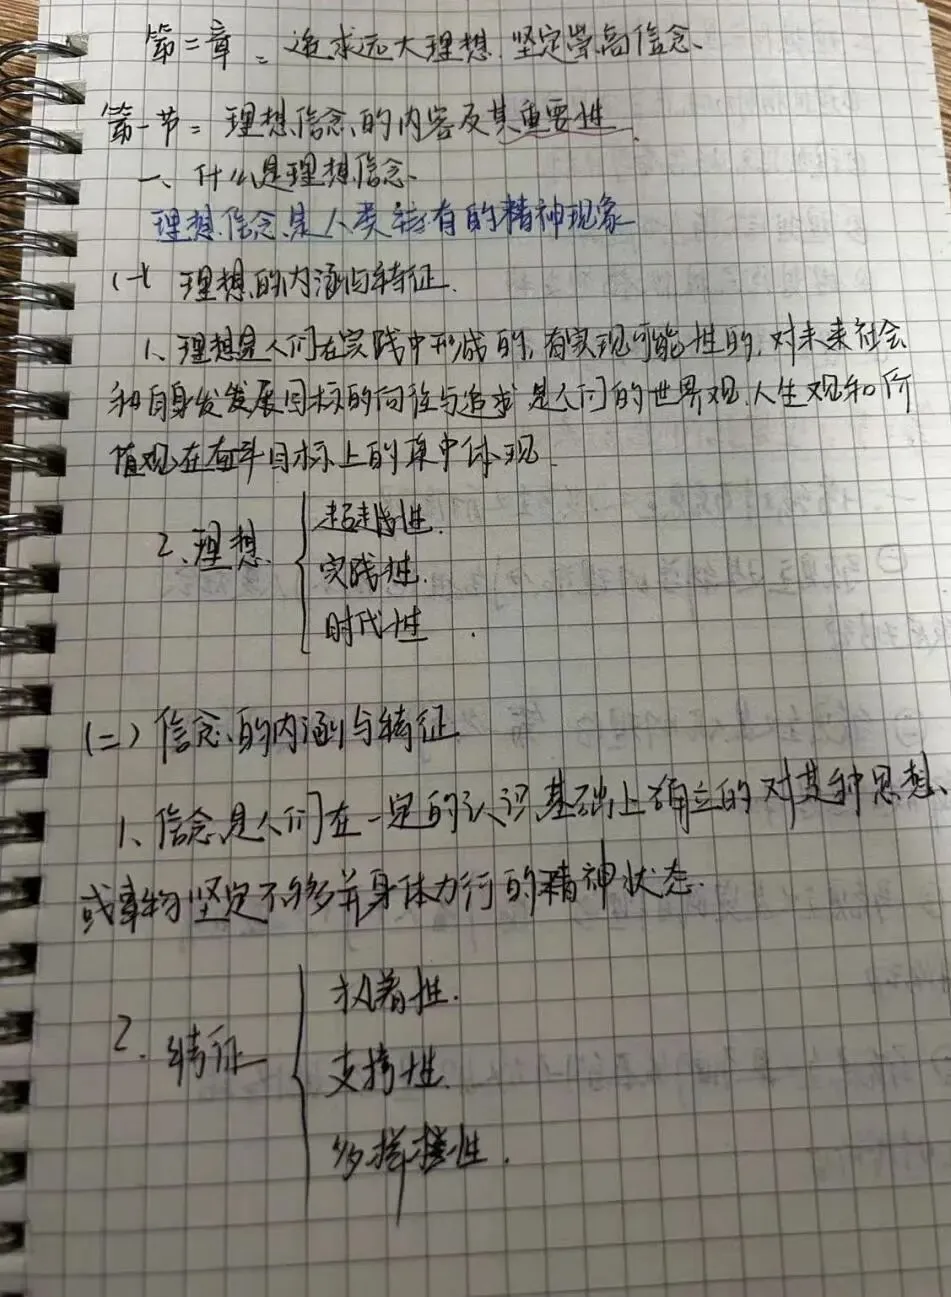 第二章、追求远大理想、坚定崇高信念、
第一节：理想信念的内容及其重要性
一、什么是理想信念、
理想信念是人类特有的精神现象
(一) 理想的内涵与特征.
1、理想是人们在实践中形成的,有实现可能性的,对未来社会
和自身发发展目标的向往与追求 是人们的世界观、人生观和价
值观在奋斗目标上的集中体现
2、理想 超越性.
实践性.
时代性.
(二) 信念的内涵与特征
1、信念是人们在一定的认识基础上确立的对某种思想、
或事物坚定不移并身体力行的精神状态.
2. 特征 执着性.
支持性.
多样性.